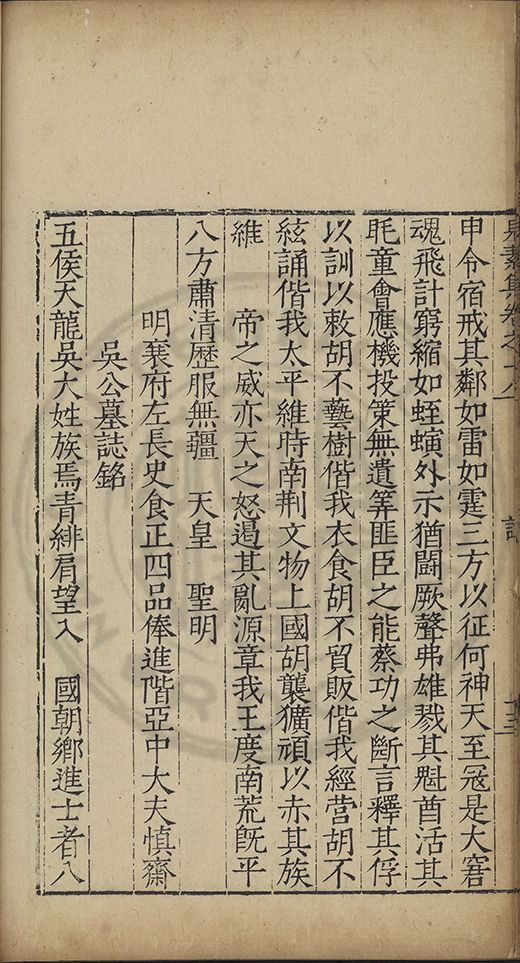 集卷之十八
申令宿戒其鄰如雷如霆三方以征何神天至寇是大窘
魂飛計窮縮如蛭螾外示猶鬪厥聲弗雄戮其魁酋活其
眊童會應機投策無遺筭匪臣之能蔡功之斷言釋其俘
以訓以敕胡不藝樹偕我衣食胡不貿販偕我經营胡不
絃誦偕我太平維時南荆文物上國胡襲獷頑以赤其族
維　帝之威亦天之怒遏其亂源章我王度南荒旣平
八方肅清歷服無疆　天皇　聖明
明襄府左長史食正四品俸進階亞中大夫慎齋
吳公墓誌銘
五侯天龍吳大姓族焉青緋肩望入　國朝鄉進士者八